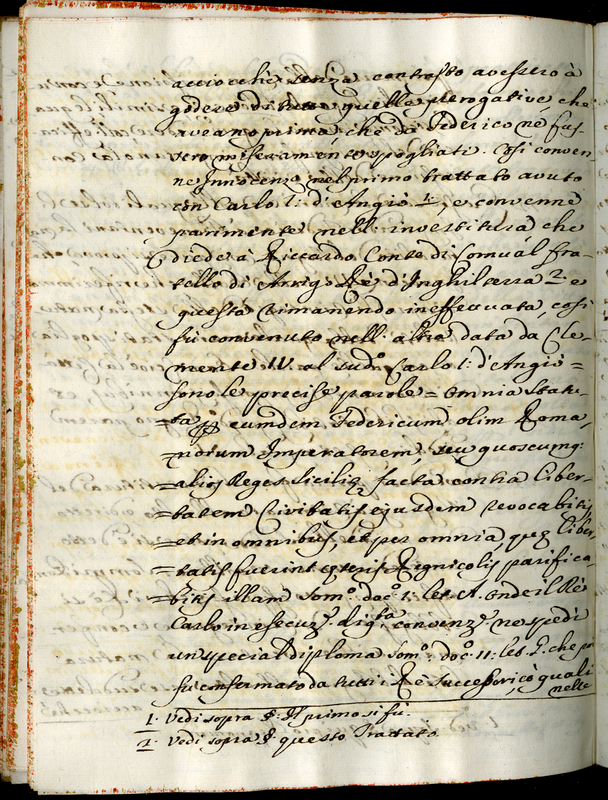 acciochè senza contrasto avessero à
godere di tutte quelle prerogative, che
aveano prima, che da Federico ne fus-
sero miseramente spogliati. Così conven-
ne Innocenzo nel primo trattato avuto
con Carlo I: d'Angiò 1:, e convenne
parimente nell: investitura che
diede à Riccardo Conte di Cornuàl fra-
tello di Arrigo Rè d'Inghilterra 2: e
questa rimanendo ineffettuata, così
fù convenuto nell: altra data da Cle-
mente IV. al sudº: Carlo I: d'Angiò =
sono le precise parole = Omnia Statu-
=ta per eumdem Federicum olim Roma-
=norum Imperatorem, seu quoscumq:
=alios Reges Siciliæ facta contra Liber-
=tatem Civitatis ejusdem revocabitis
=et in omnibus, et per omnia, quæ Liber-
=tatis fuerint cæteris Regnicolis parifica-
=bitis illam Somº: docº: 1: let. A. Onde il Rè
Carlo in esecuzº: di gsta convenzº: ne spedì
un special diploma Somº: docº: 11: let. J. che poi
fù confermato da tutti i Rè successori, ò quali
nelle
1: Vedi sopra §: Il primo si fù.
2: Vedi sopra §: questo Trattato.